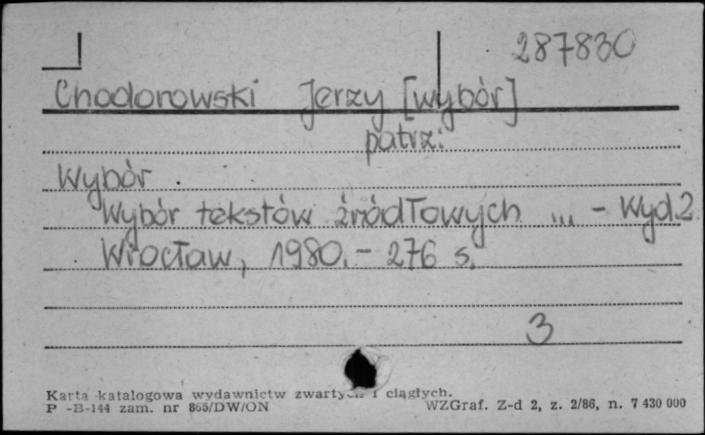 287830
Chodorowski Jerzy [wybór]
patrz:
Wybór.
Wybór tekstów źródłowych ... - Wyd.2
Wrocław, 1980. - 276 s.
3
Karta katalogowa wydawnictw zwartych i ciągłych.
P -B-144 zam. nr 865/DW/ON WZGraf. Z-d 2, z. 2/86, n. 7 430 000